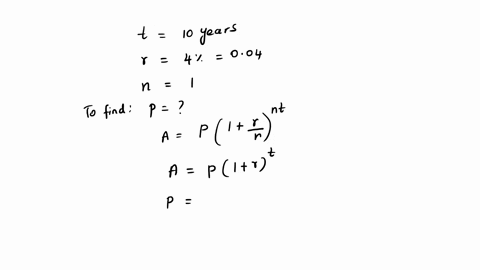 t = 10 years
r = 4% = 0.04
n = 1
To find: P = ?
A = P(1 + r/n)^nt
A = P(1 + r)^t
P =